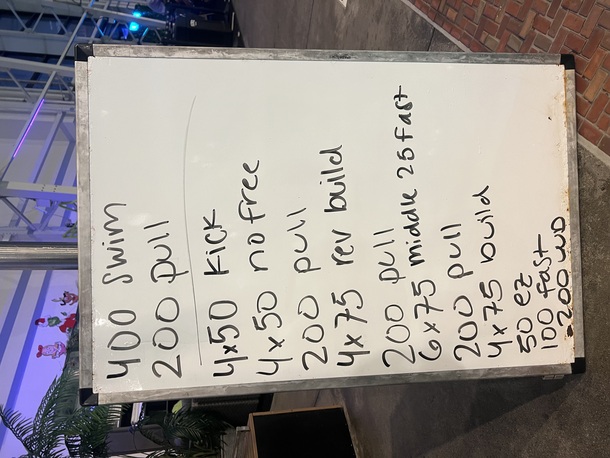 400 Swim
200 pull
4x50 Kick
4x50 no free
200 pull
4x75 rev build
200 pull
6x75 middle 25 fast
200 pull
4x75 build
50 ez
100 fast
200 WD